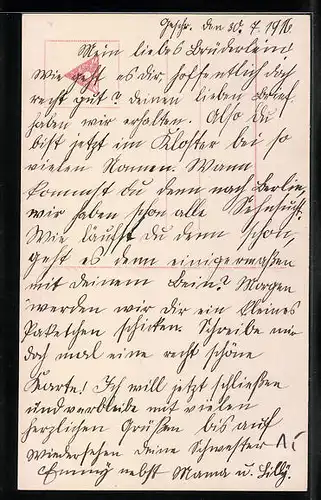 Geschr. den 30. 7. 1916.
Mein liebes Brüderlein!
Wie geht es dir hoffentlich doch
recht gut? deinen lieben Brief
haben wir erhalten. Also du
bist jetzt im Kloster bei so
vielen Nonnen. Wann
kommst du denn nach Berlin,
wir haben schon alle Sehnsucht.
Wie läufst du denn schon,
geht es denn einigermaßen
mit deinem Bein? Morgen
werden wir dir ein kleines
Paketchen schicken. Schreibe mir
doch mal eine recht schöne
Karte! Ich will jetzt schließen
und verbleibe mit vielen
herzlichen Grüßen bis auf
Wiedersehen deine Schwester
Emmy nebst Mama u. Lilly.